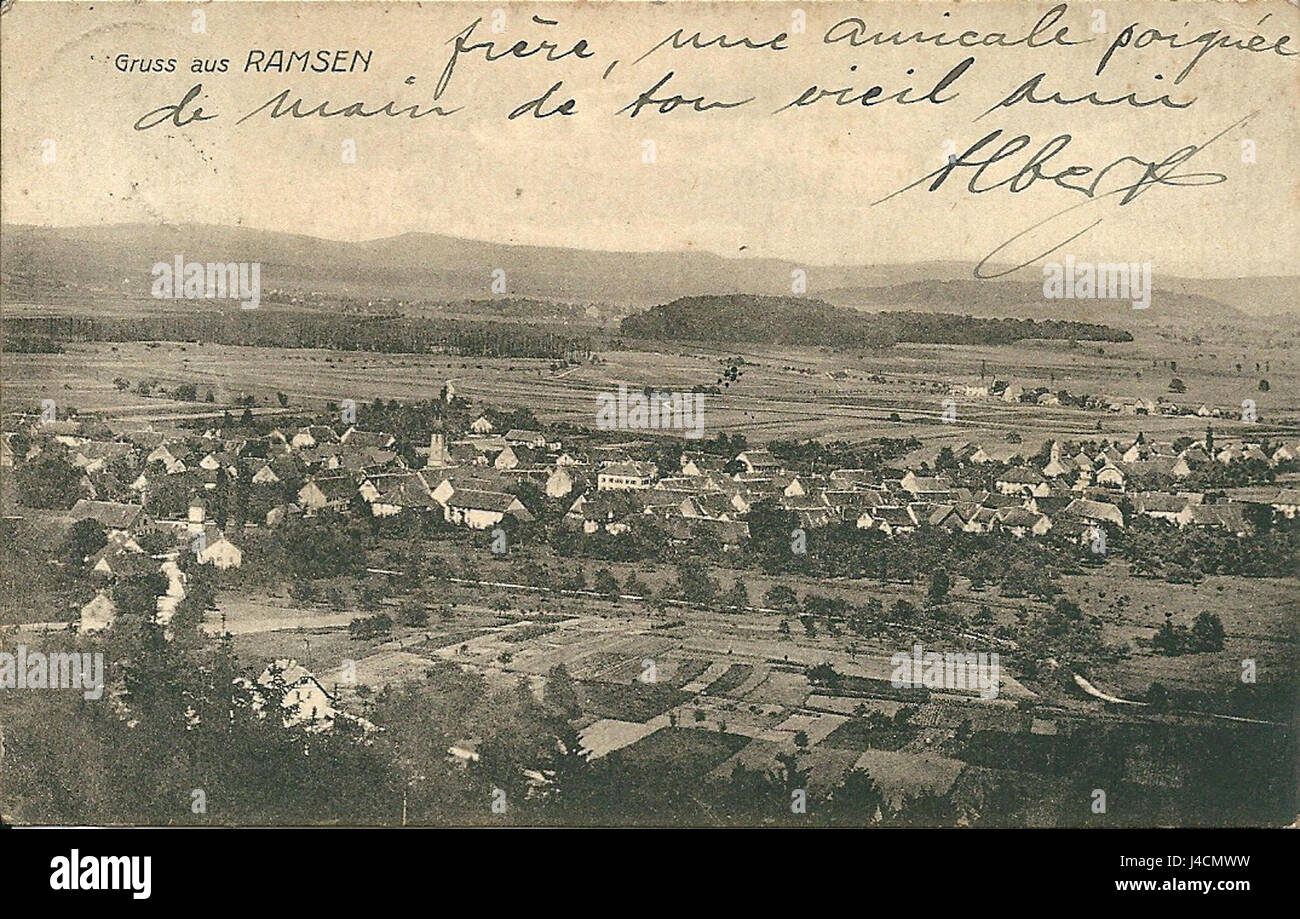 Gruss aus RAMSEN
frère, une amicale poignée
de main de ton vieil ami
Albert
alamy
Image ID: J4CMWW
www.alamy.com